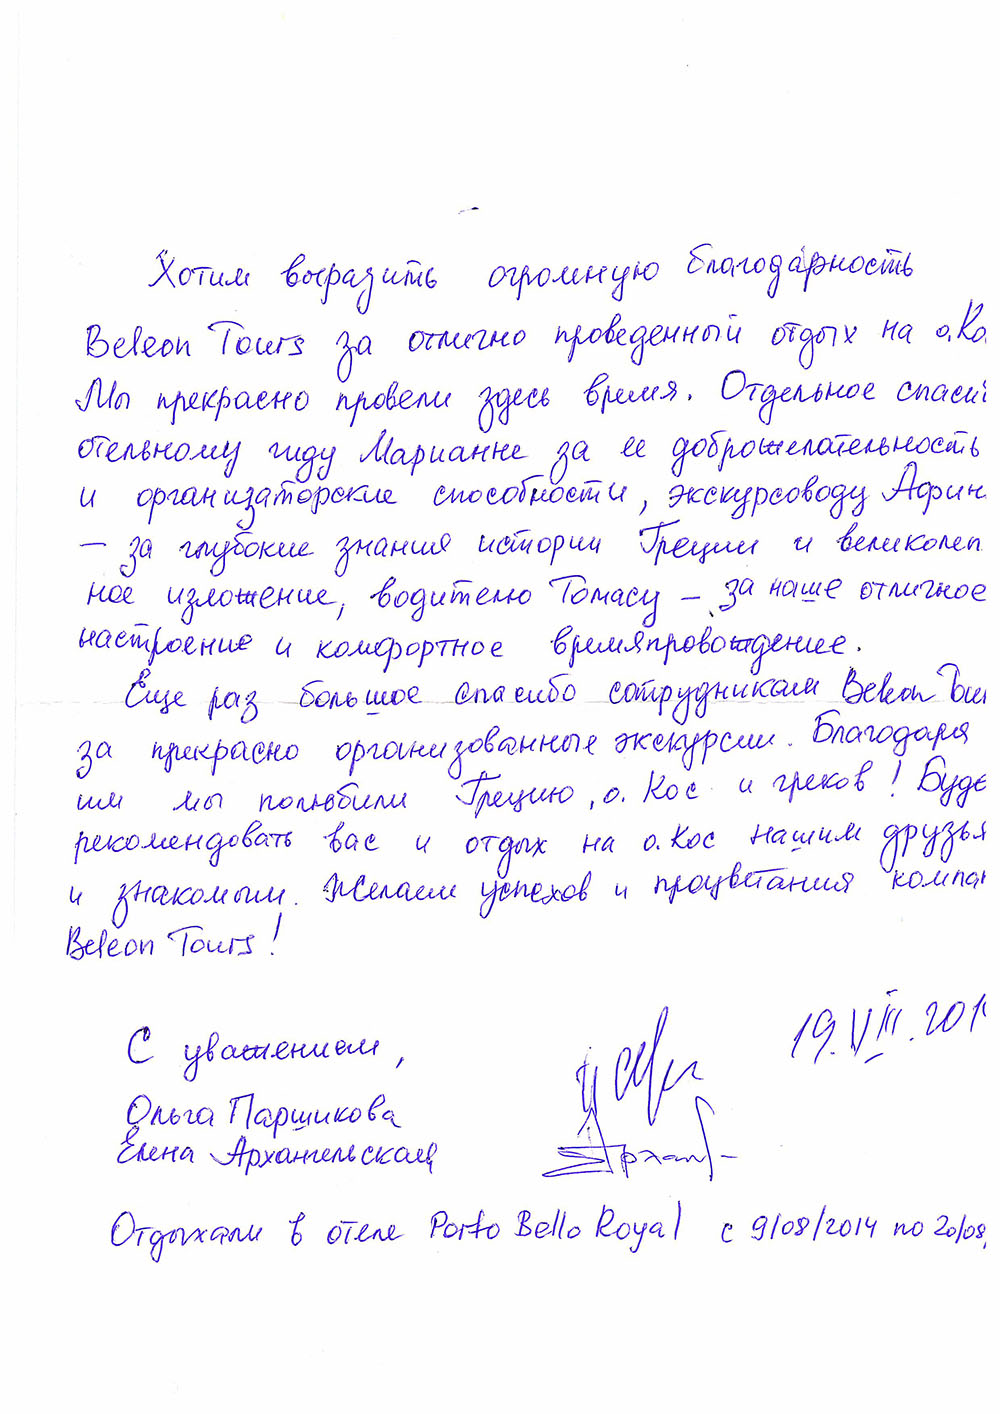 Хотим выразить огромную благодарность
Beleon Tours за отлично проведенный отдых на о.Ко
Мы прекрасно провели здесь время. Отдельное спаси
отельному гиду Марианне за ее доброжелательность
и организаторские способности, экскурсоводу Афин
— за глубокие знания истории Греции и великолеп
ное изложение, водителю Томасу — за наше отличное
настроение и комфортное времяпровождение.
Еще раз большое спасибо сотрудникам Beleon Tour
за прекрасно организованные экскурсии. Благодаря
им мы полюбили Грецию, о. Кос и греков! Буде
рекомендовать вас и отдых на о.Кос нашим друзья
и знакомым. Желаем успехов и процветания компан
Beleon Tours!
С уважением,
19.VIII.201
Ольга Паршикова
Елена Архангельская
Отдыхали в отеле Porto Bello Royal с 9/08/2014 по 20/08/